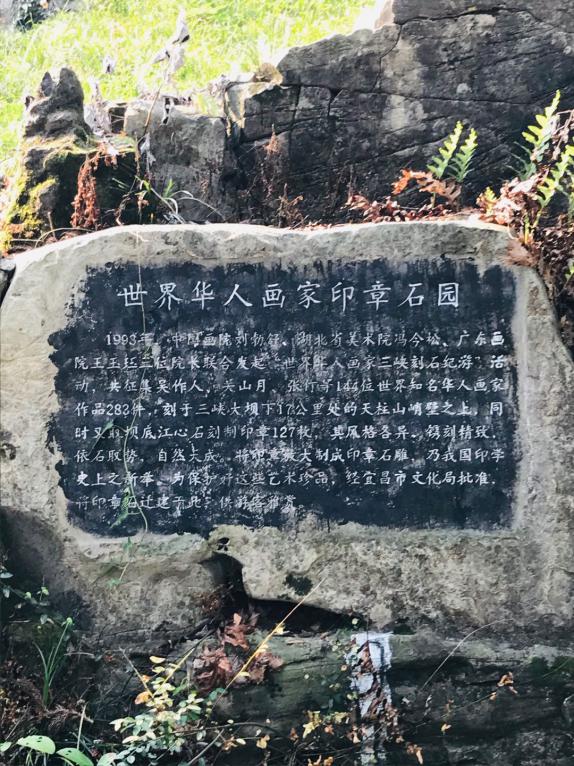 世界华人画家印章石园
1993年，中国画院刘勃舒、湖北省美术院冯今松、广东画
院王玉珏三位院长联合发起“世界华人画家三峡刻石纪游”活
动，共征集吴作人，关山月，张仃等144位世界知名华人画家
作品283件，刻于三峡大坝下17公里处的天柱山峭壁之上，同
时又取坝底江心石刻制印章127枚，其风格各异、镌刻精致，
依石取势，自然天成。将印章放大制成印章石雕，乃我国印学
史上之新举。为保护好这些艺术珍品，经宜昌市文化局批准，
将印章石迁建于此，供游客雅赏